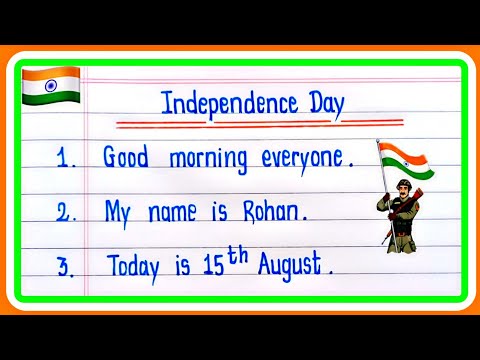 Independence Day
1. Good morning everyone.
2. My name is Rohan.
3. Today is 15th August.